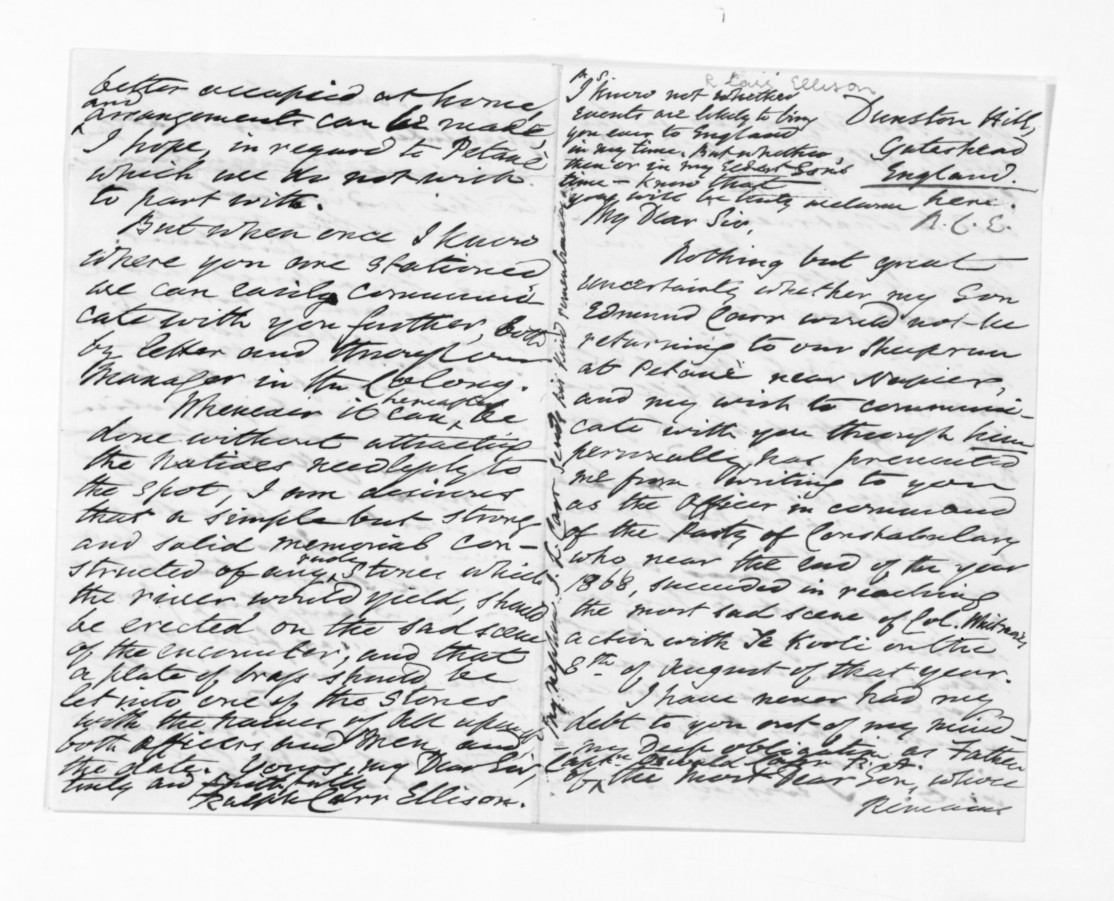 R Carr Ellison
Dunston Hill,
Gateshead
England.
P.S.
I know not whether
events are likely to bring
you ever to England
in my time. But whether
then or in my Eldest Son's
time – know that
you will be truly welcome here.
R. C. E.
My Dear Sir,
Nothing but great
uncertainty whether my Son
Edmund Carr would not be
returning to our Sheeprun
at Petane near Napier,
and my wish to communi-
cate with you through him
personally, has prevented
me from writing to you
as the Officer in command
of the Party of Constabulary
who near the end of the year
1868, succeeded in reaching
the most sad scene of Col. Whitmore's
action with Te Kooti on the
8th of August of that year.
I have never had my
debt to you out of my mind –
my Deep obligation as Father
of Captn. Oswald Carr R.A.
the most Dear Son, whose
Remains
better occupied at home,
and arrangements can be made,
I hope, in regard to Petane
which we do not wish
to part with.
But when once I know
where you are stationed
we can easily communi-
cate with you further, both
by letter and through our
Manager in the Colony.
Whenever it can hereafter be
done without attracting
the Natives needlessly to
the spot, I am desirous
that a simple but strong
and solid memorial con-
structed of any rude Stones which
the river would yield, should
be erected on the sad scene
of the encounter; and that
a plate of brass should be
let into one of the Stones
with the names of all
both officers and Men, and
the date. Yours, my Dear Sir,
truly and faithfully
Ralph Carr Ellison.
My nephew Carr sends his kind remembrance